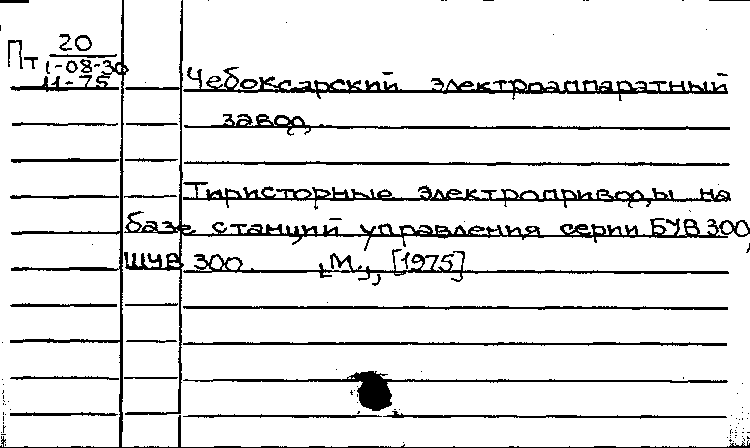 Пт 20
1-08-30
11-75
Чебоксарский электроаппаратный
завод.
Тиристорные электроприводы на
базе станций управления серии БУВ 300,
ШУВ 300. [М.], [1975]